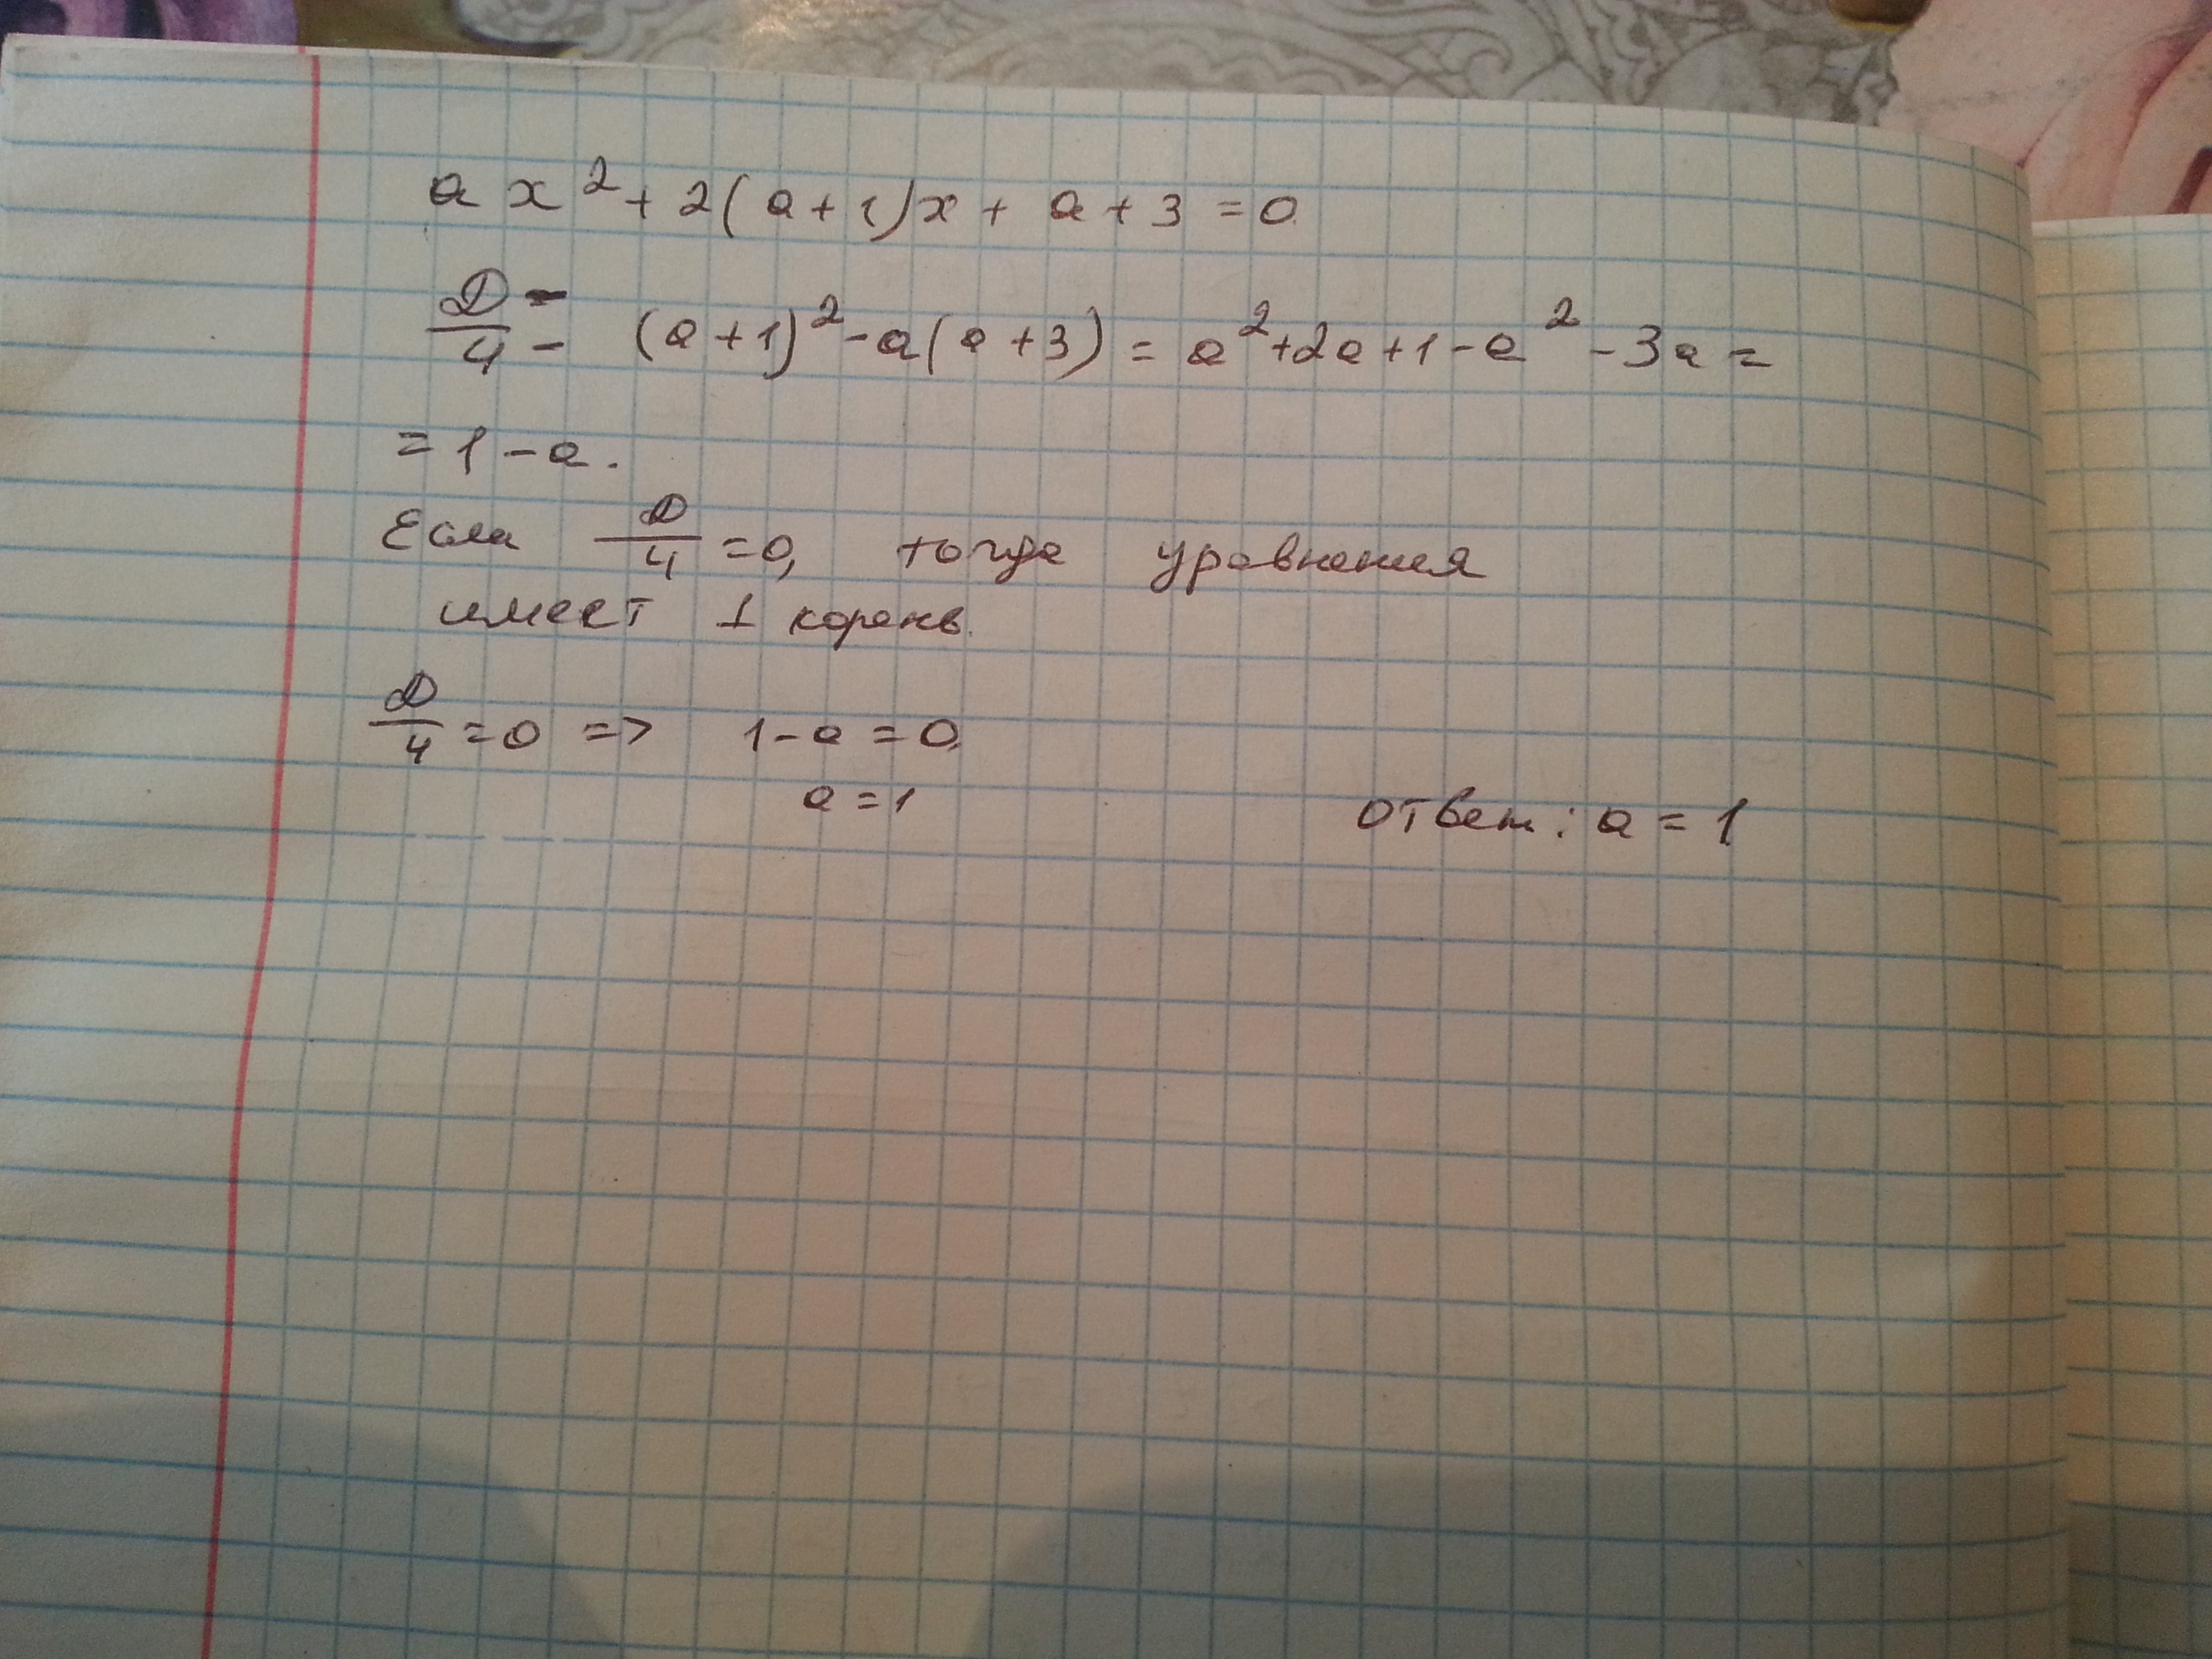 ax² + 2(a+1)x + a + 3 = 0
D/4 = (a+1)² - a(a+3) = a² + 2a + 1 - a² - 3a =
= 1 - a.
Если D/4 = 0, тогда уравнения
имеет 1 корень.
D/4 = 0 => 1 - a = 0,
a = 1
Ответ: a = 1